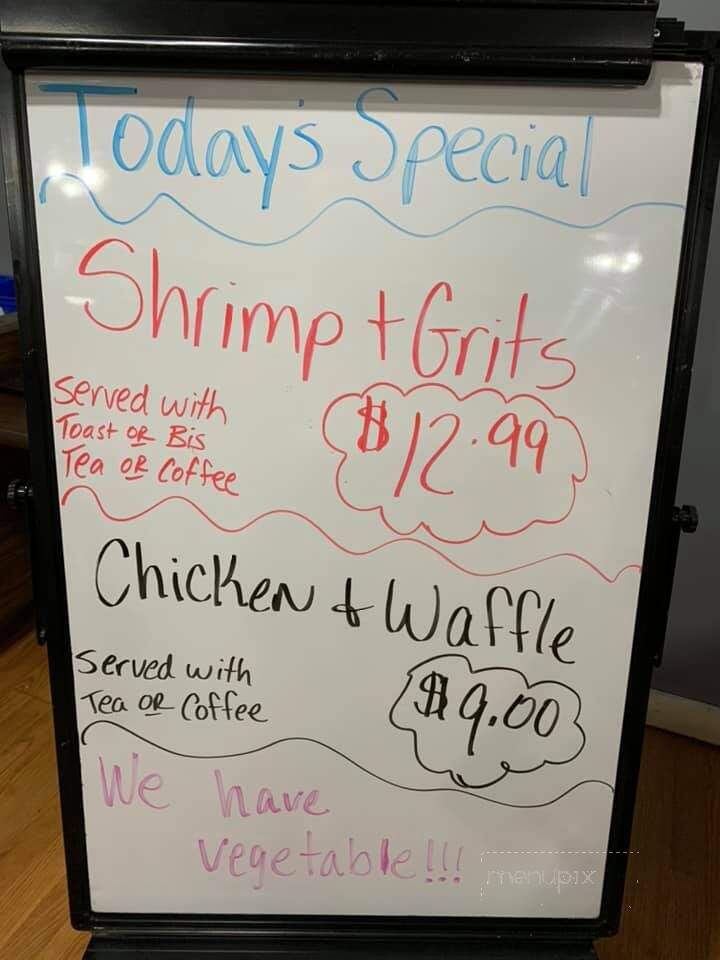 Today's Special
Shrimp + Grits
Served with
Toast OR Bis
Tea OR Coffee
$12.99
Chicken & Waffle
Served with
Tea OR Coffee
$9.00
We have
vegetable!!!
menupix